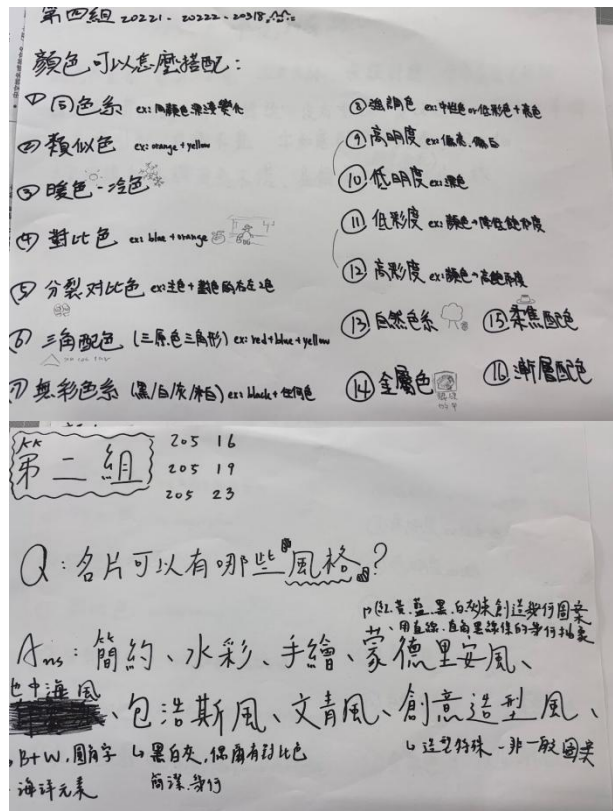 第四組 20221. 20222. 20318.
顏色可以怎麼搭配：
① 同色系 ex: 同顏色漸淺變化
② 類似色 ex: orange + yellow
③ 暖色-冷色
④ 對比色 ex: blue + orange
⑤ 分裂対比色 ex: 主色 + 對色的左右2色
⑥ 三角配色 (三原色三角形) ex: red+blue+yellow
⑦ 無彩色系 (黑/白/灰/米白) ex: black + 任何色
⑧ 強調色 ex: 中性色 or 低彩色 + 亮色
⑨ 高明度 ex: 偏亮、偏白
⑩ 低明度 ex: 濃色
⑪ 低彩度 ex: 顏色→降低飽和度
⑫ 高彩度 ex: 顏色→高飽和度
⑬ 自然色系
⑮ 柔焦配色
⑭ 金屬色
⑯ 漸層配色
第二組
205 16
205 19
205 23
Q：名片可以有哪些『風格』？
用紅、黃、藍、黑、白、灰來創造幾何圖案
、用直線、直角
Ans：簡約、水彩、手繪、蒙德里安風、
地中海風
、包浩斯風、文青風、創意造型風、
B+W, 圓角字 ↳ 黑白灰, 偶爾有對比色 ↳ 造型特殊-非一般圖案
海洋元素 簡潔、幾何